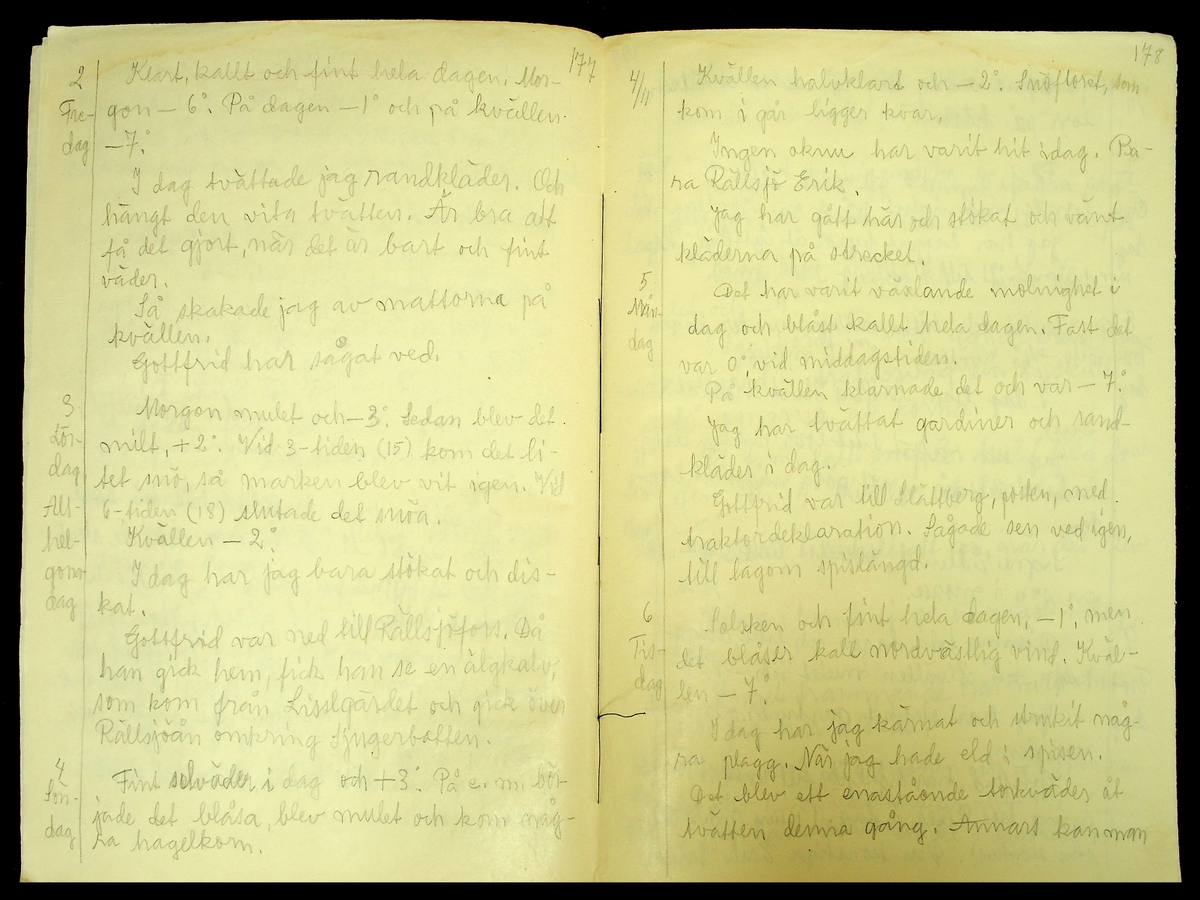 177
2 Fre-dag
Klart, kallt och fint hela dagen. Mor-
gon - 6°. På dagen -1° och på kvällen
-7°.
I dag tvättade jag randkläder. Och
hängt den vita tvätten. Är bra att
få det gjort, när det är bart och fint
väder.
Så skakade jag av mattorna på
kvällen.
Gottfrid har sågat ved.
3 Lör-dag All-hel-gona-dag
Morgon mulet och -3°. Sedan blev det
milt, +2°. Vid 3-tiden (15) kom det li-
tet snö, så marken blev vit igen. Vid
6-tiden (18) slutade det snöa.
Kvällen - 2°.
I dag har jag bara stökat och dis-
kat.
Gottfrid var ned till Rällsjöfors. Då
han gick hem, fick han se en älgkalv,
som kom från Lisslgärdet och gick över
Rällsjöån omkring
4 Sön-dag
Fint solväder i dag och +3°. På e. m. bör-
jade det blåsa, blev mulet och kom någ-
ra hagelkorn.
178
4/11
Kvällen halvklart och -2°. Snöfloret, som
kom i går ligger kvar.
Ingen har varit hit idag. Ba-
ra Rällsjö Erik.
Jag har gått här och stökat och vänt
kläderna på strecket.
5 Mån-dag
Det har varit växlande molnighet i
dag och blåst kallt hela dagen. Fast det
var 0°, vid middagstiden.
På kvällen klarnade det och var -7°.
Jag har tvättat gardiner och rand-
kläder i dag.
Gottfrid var till Slättberg, posten, med
traktordeklaration. Sågade sen ved igen,
till lagom spislängd.
6 Tis-dag
Solsken och fint hela dagen, -1°, men
det blåser kall nordvästlig vind. Kväl-
len - 7°.
I dag har jag kärnat och strukit någ-
ra plagg. När jag hade eld i spisen.
Det blev ett enastående torkväder åt
tvätten denna gång. Annars kan man